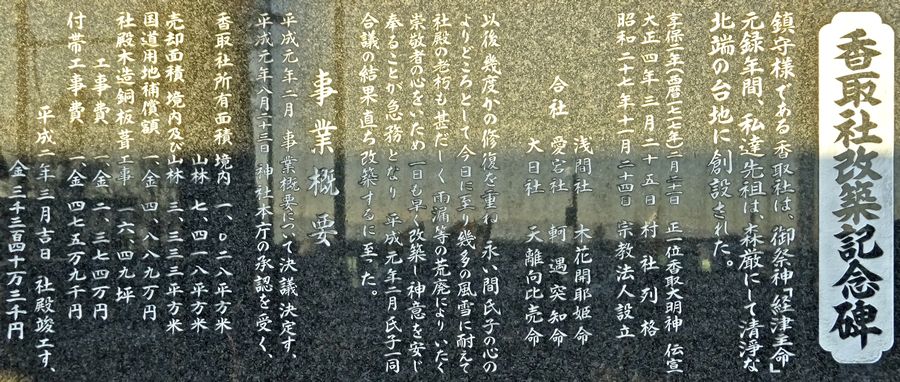 香取社改築記念碑
鎮守様である香取社は、御祭神「経津主命」
元録年間、私達先祖は、森厳にして清淨な
北端の台地に創設された。
享保二年(西暦一七一七年)二月二十二日 正一位香取大明神 伝宣
大正四年三月二十五日 村社列格
昭和二十七年十一月二十四日 宗教法人設立
合社 浅間社 木花開耶姫命
愛宕社 軻遇突知命
大日社 天離向比売命
以後、幾度かの修復を重ね、永い間氏子の心の
よりどころとして今日に至り幾多の風雪に耐えて
社殿の老朽も甚だしく雨漏等の荒廃によりいたく
崇敬者の心をいため一日も早く改築し神意を安じ
奉ることが急務となり 平成元年二月氏子一同
合議の結果直ち改築するに至った。
事業概要
平成元年二月 事業概要について決議決定す、
平成元年八月二十三日 神社本庁の承認を受く、
香取社所有面積 境内 一、〇二八平方米
山林 七、四一八平方米
売却面積 境内及び山林 三、三三三平方米
国道用地補償額 一、金 四、八八九万円
社殿木造銅板葺工事 一六、四九坪
工事費 一、金 二、三七四万円
付帯工事費 一、金 四七五万九千円
平成二年三月吉日 社殿竣工す、
金 二千三百四十万三千円